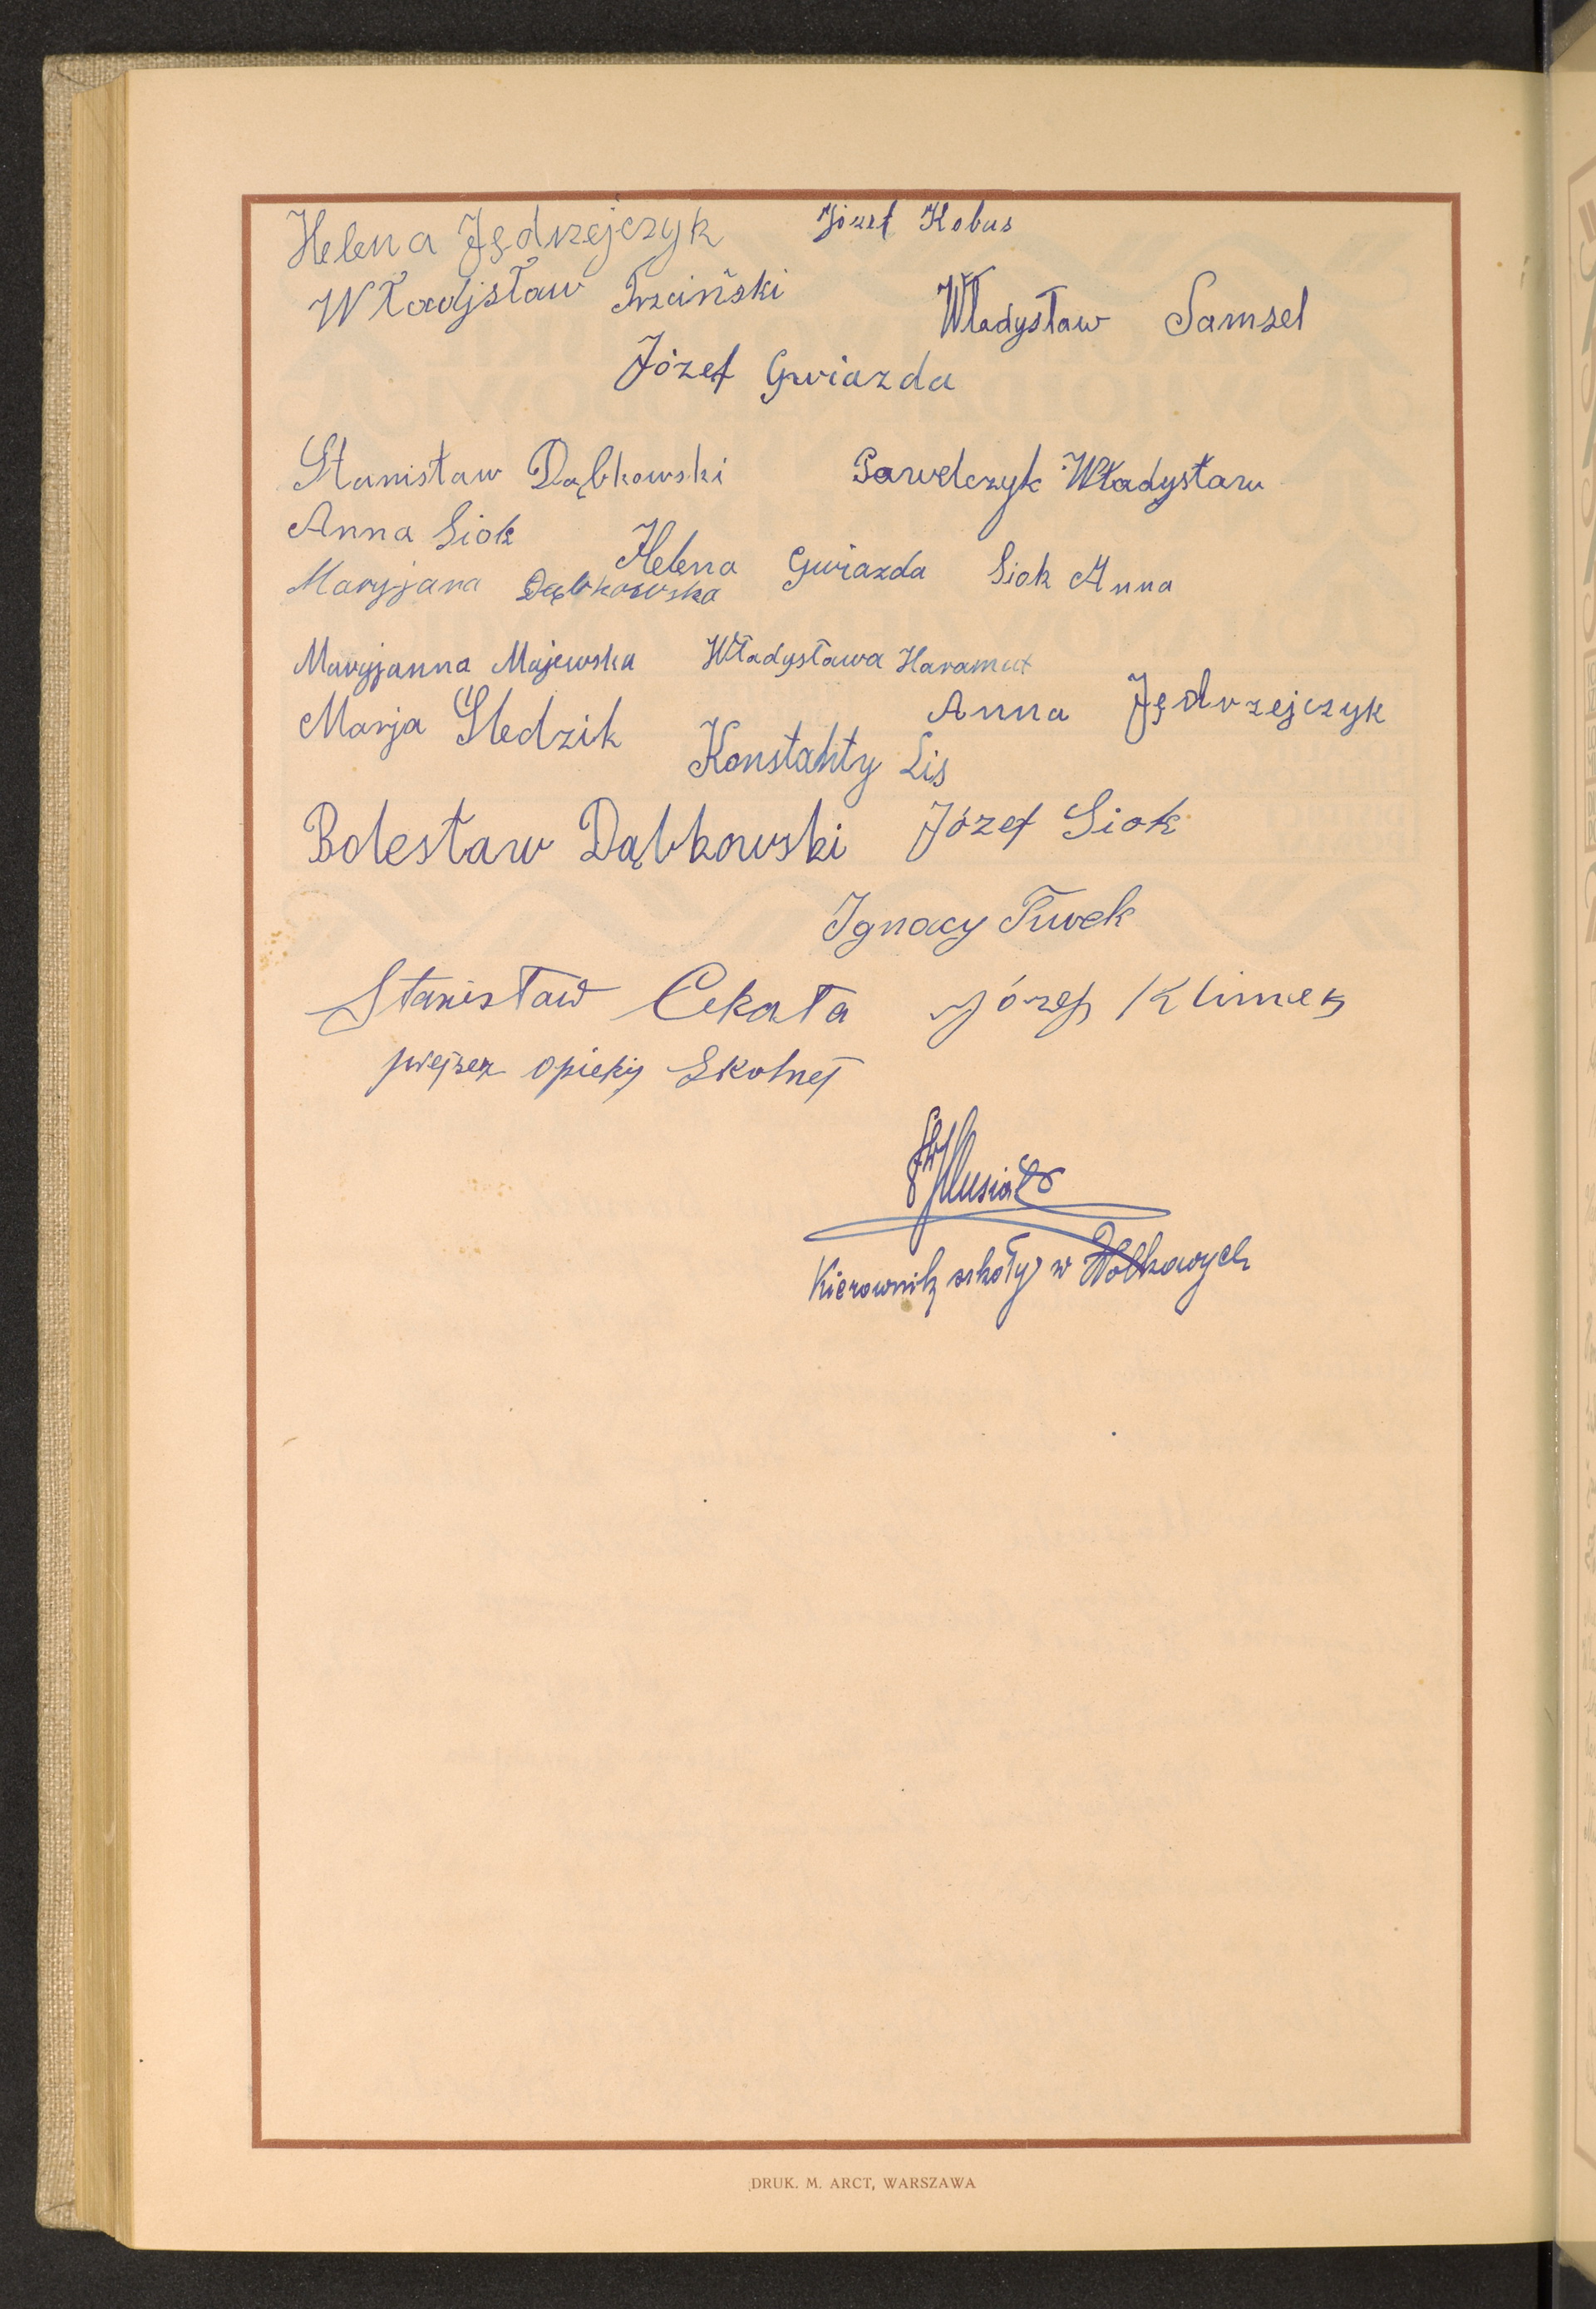 Helena Jędrzejczyk Józef Kobus
Władysław Trzciński Władysław Samsel
Józef Gwiazda
Stanisław Dąbkowski Pawelczyk Władysław
Anna Siok Helena Gwiazda Siok Anna
Maryjana Dąbkowska
Maryjanna Majewska Władysława Haramut
Marja Śledzik Anna Jędrzejczyk
Konstanty Lis
Bolesław Dąbkowski Józef Siok
Ignacy Turek
Stanisław Cekała Józef Klimek
opieky Skolnej
Musiał
Kierownik szkoły w Wolkowych
DRUK. M. ARCT, WARSZAWA